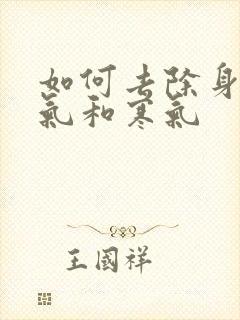 如何去除身
氣和寒氣
王國祥